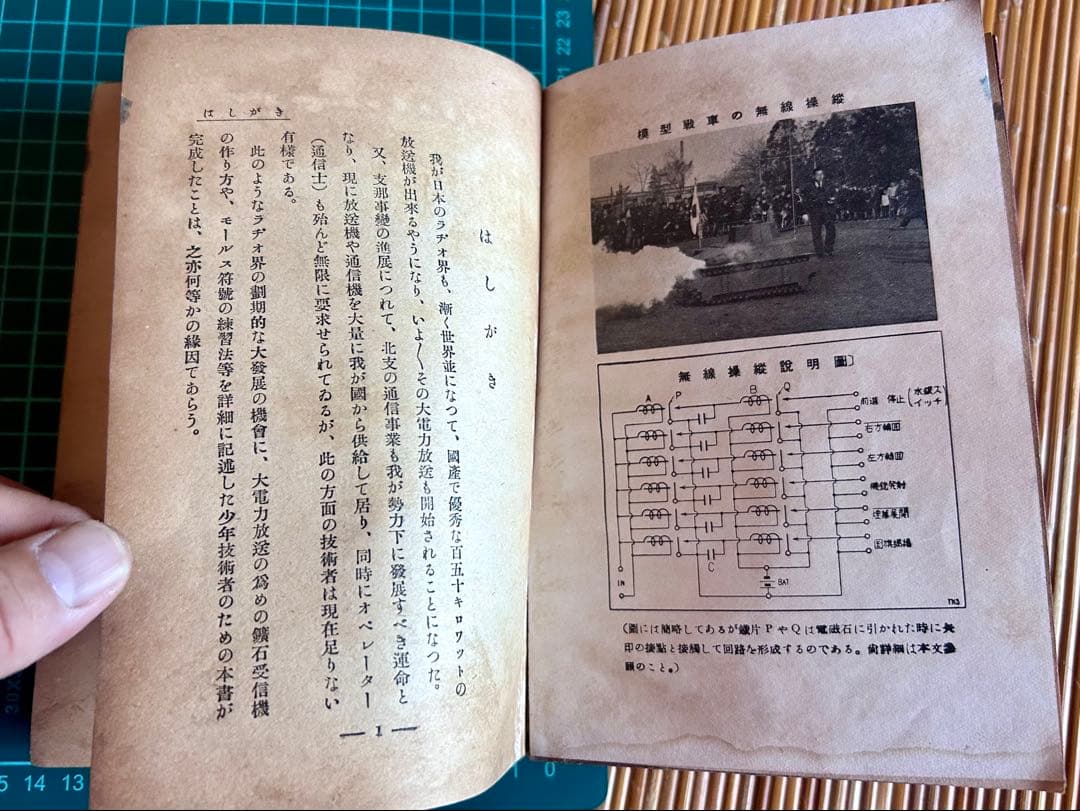 模型戰車の無線操縱
無線操縱說明圖
A
P
B
Q
前進 停止 (水銀スイッチ)
右方轉囘
左方轉囘
機銃發射
煙幕展開
国旗掲揚
C
IN
BAT
TKS
(圖には簡略してあるが鐵片PやQは電磁石に引かれた時に矢
印の接點と接觸して回路を形成するのである。尚詳細は本文參
照のこと。)
はしがき
はしがき
我が日本のラヂオ界も、漸く世界並になつて、國產で優秀な百五十キロワットの
放送機が出來るやうになり、いよ〳〵その大電力放送も開始されることになつた。
又、支那事變の進展につれて、北支の通信事業も我が勢力下に發展すべき運命と
なり、現に放送機や通信機を大量に我が國から供給して居り、同時にオペレーター
(通信士)も殆んど無限に要求せられてゐるが、此の方面の技術者は現在足りない
有樣である。
此のようなラヂオ界の劃期的な大發展の機會に、大電力放送の爲めの鑛石受信機
の作り方や、モールス符號の練習法等を詳細に記述した少年技術者のための本書が
完成したことは、之亦何等かの緣因であらう。
— 1 —
23
22
21
14 13
0